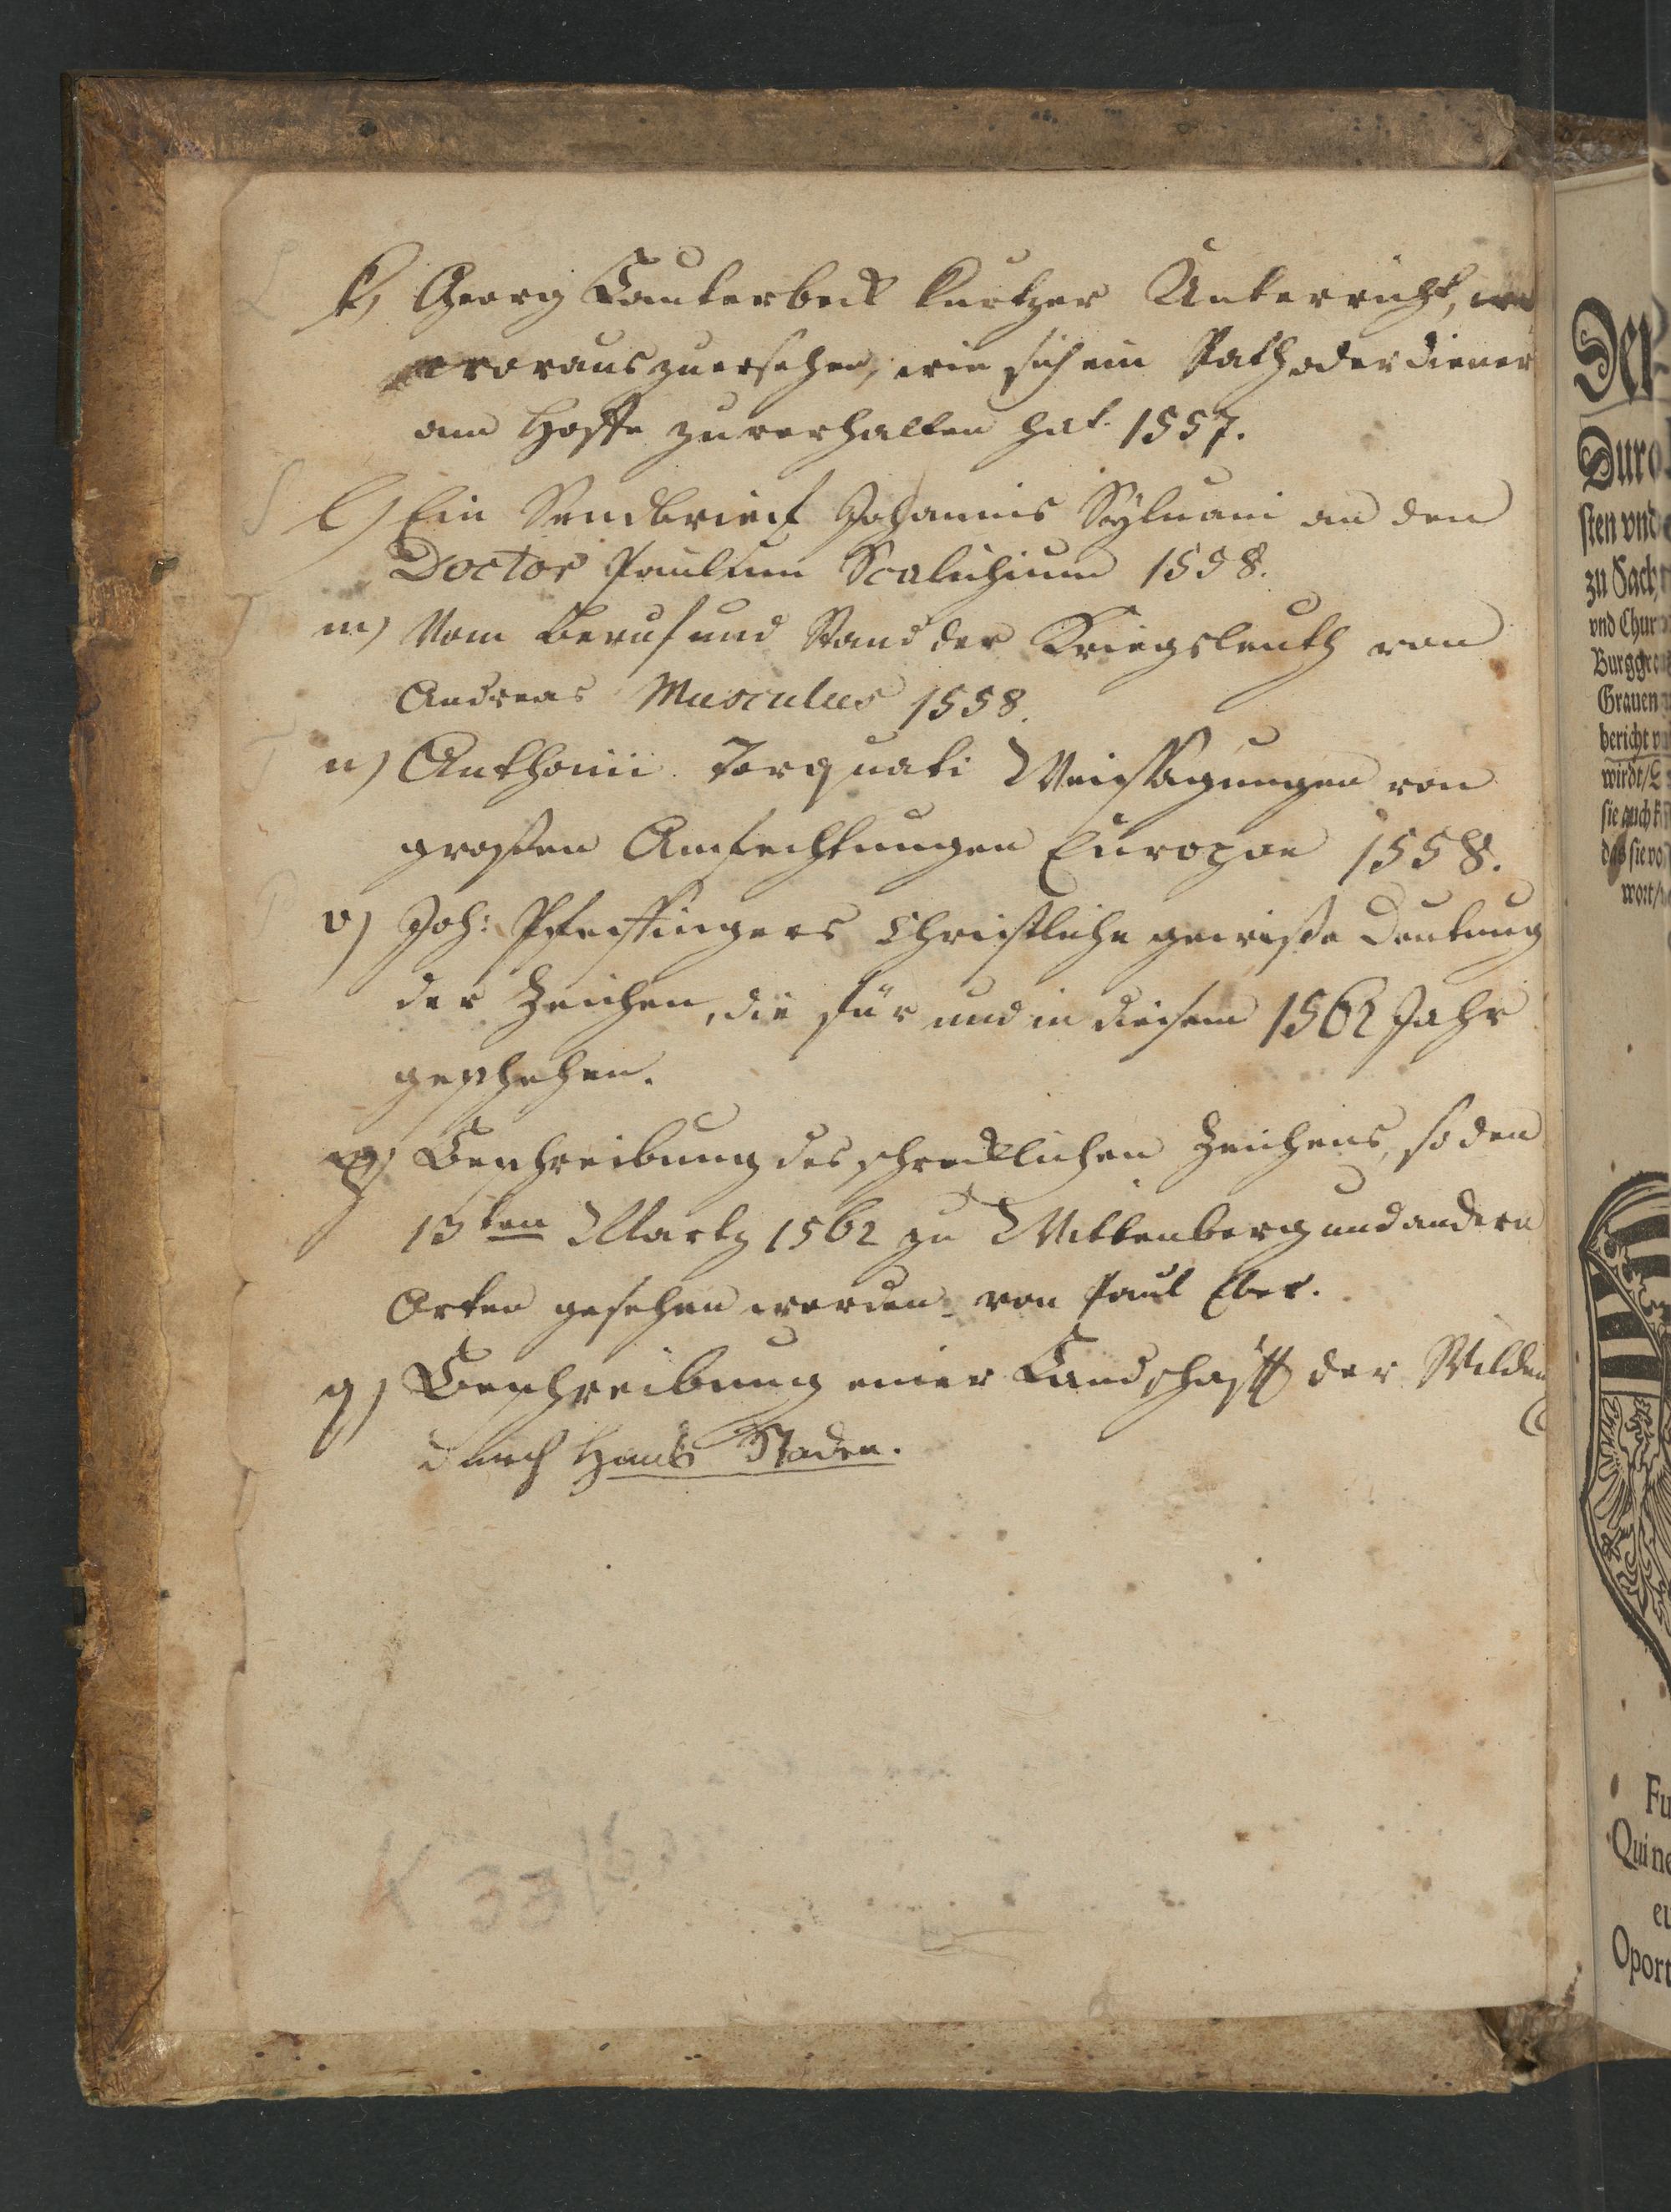 L k) Georg Lauterbeck kurtzer Unterricht,
woraus zuersehen, wie sich ein Rath oder diener
am Hoffe zuverhalten hat. 1557.
S l) Ein Sendbrieff Johannis Sylvani an den
Doctor Paulum Scalichium 1558.
m) Vom Beruf und Stand der Kriegsleuth von
Andreas Musculus 1558.
T n) Anthonii Torquati Weissagungen von
großen Anfechtungen Europae 1558.
P o) Joh: Pfeffingers Christliche gewisse Deutung
der Zeichen, die für und in diesem 1562 Jahr
geschehen.
p) Beschreibung des schrecklichen Zeichens, so den
13ten Martz 1562 zu Wittenberg und andern
Orten gesehen worden von Paul Eber.
q) Beschreibung einer Landschafft der Wilden
durch Hans Staden.
Der
Duro
sten vnd
zu Sach
vnd Chur
Burggre
Grauen
bericht
wirdt/
sie auch
das sie vo
wort/
Fu
Qui ne
eu
Oport